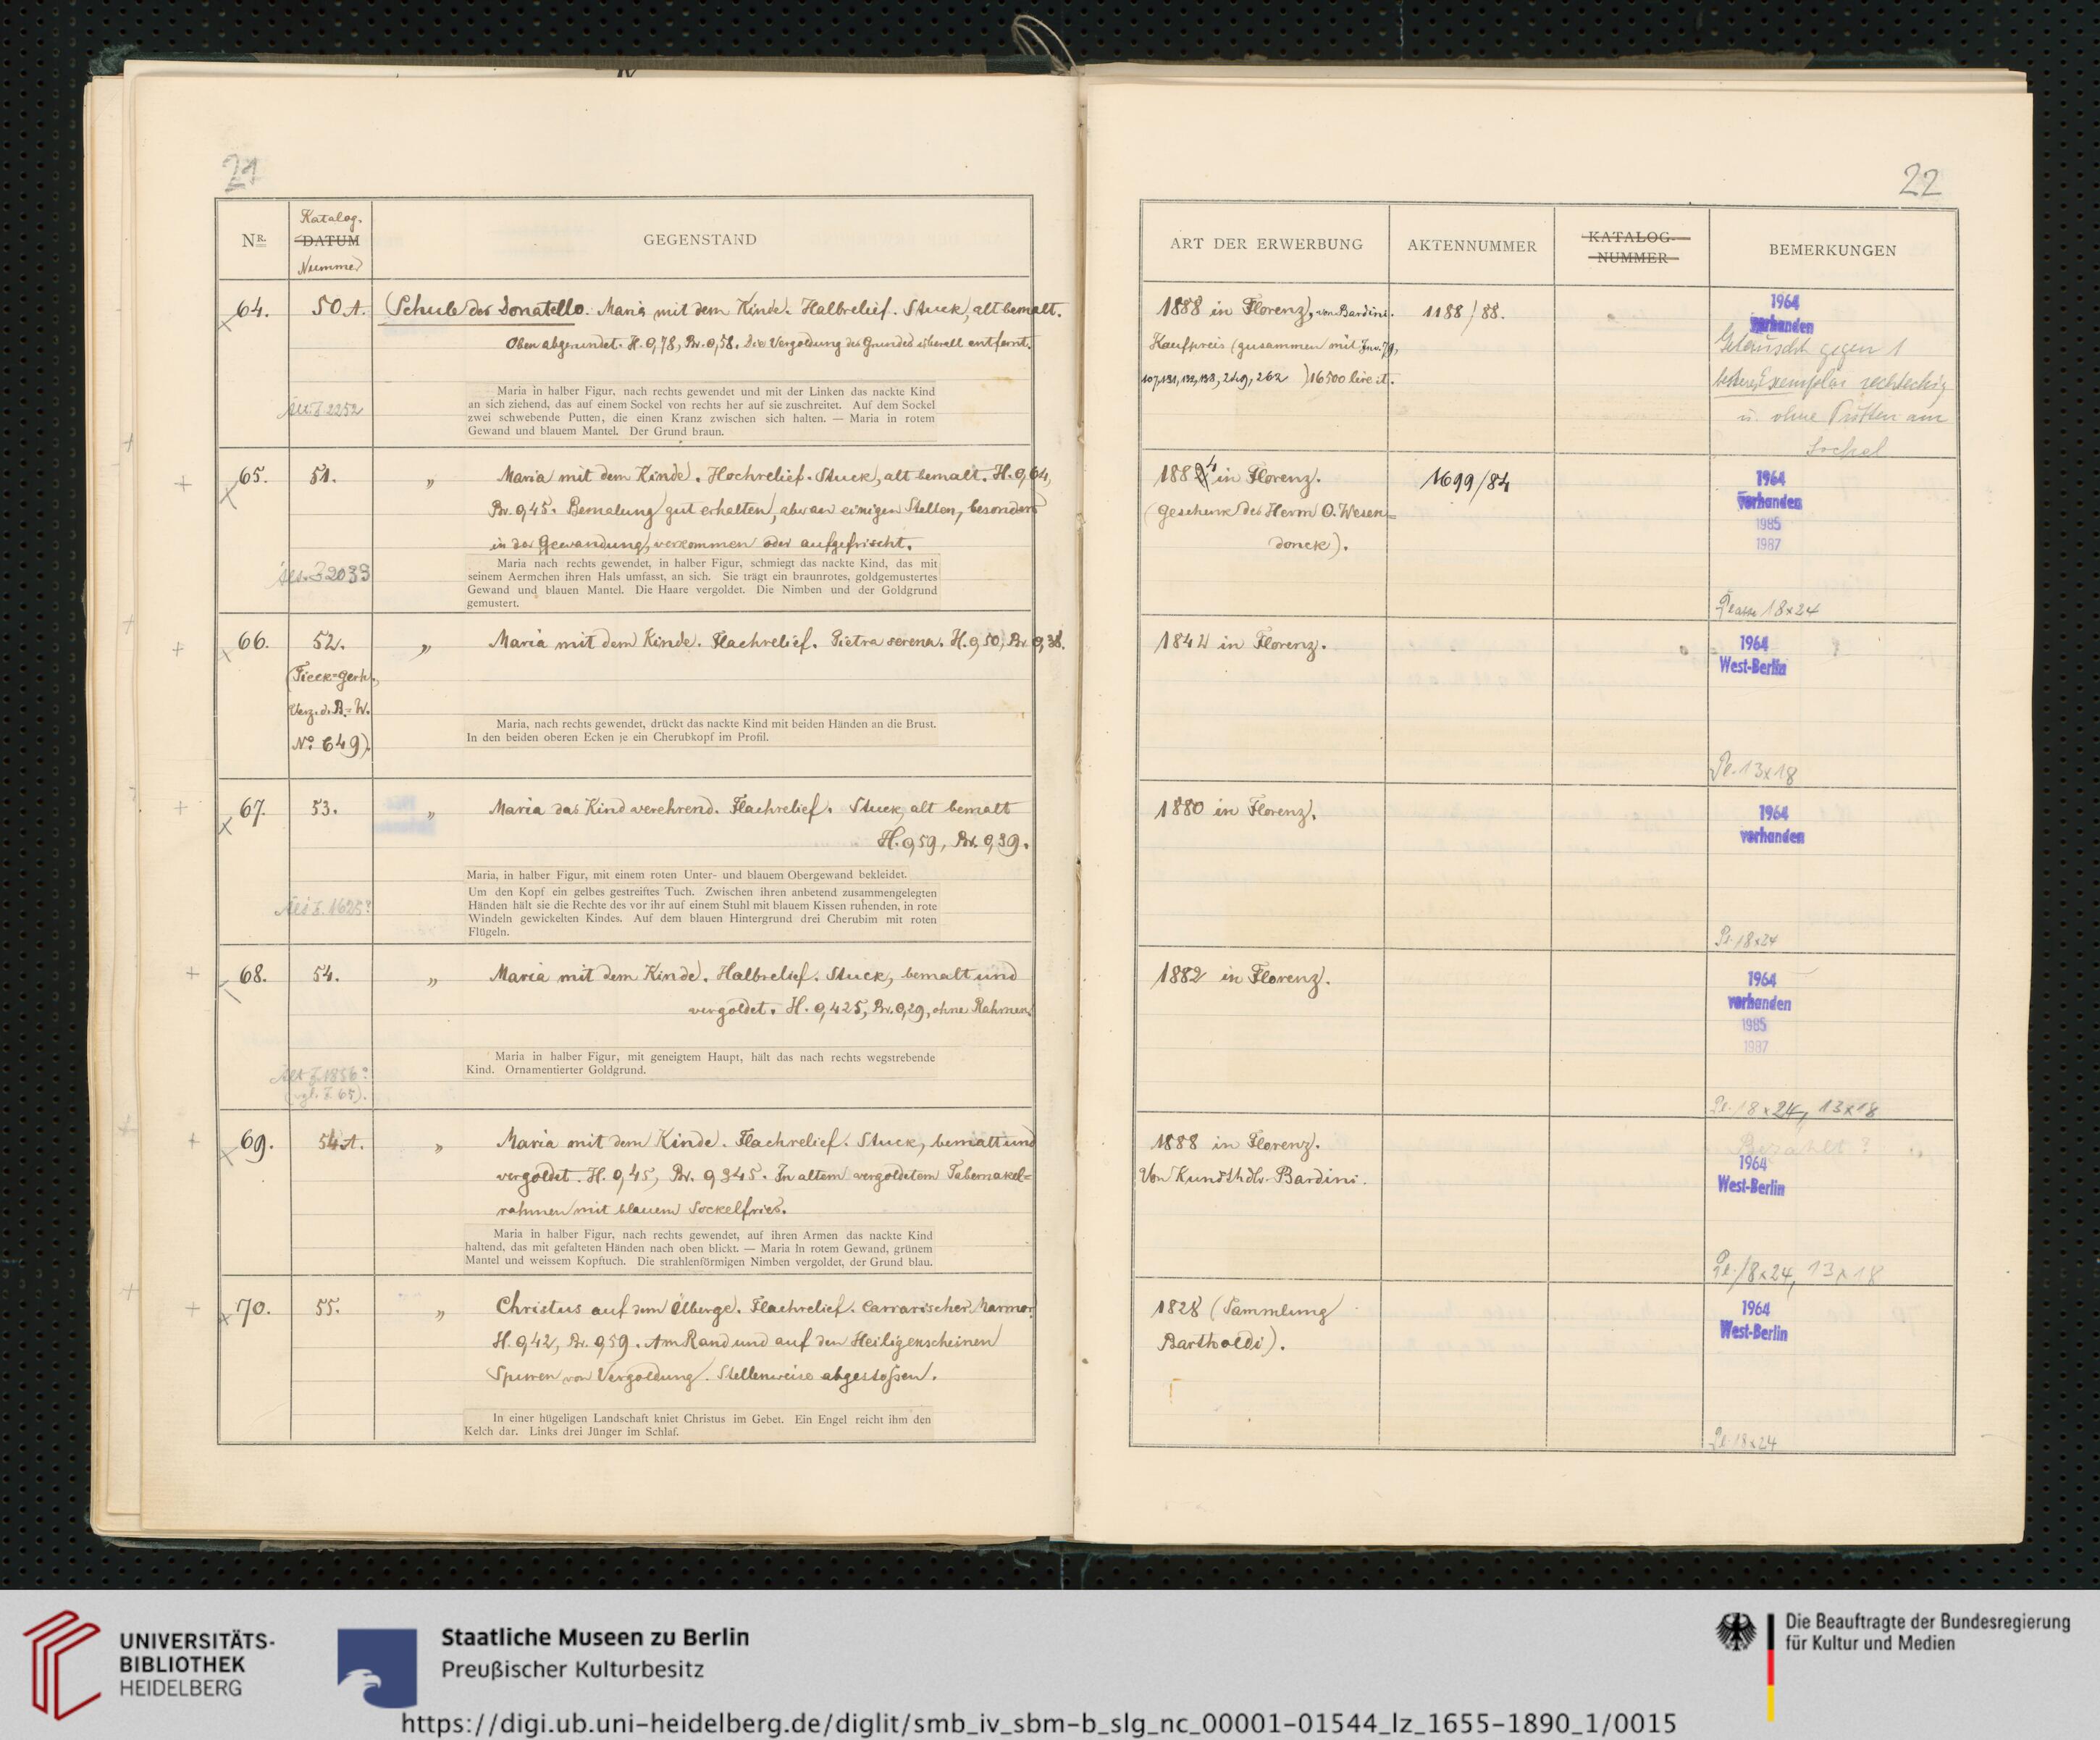 21
Nr.
Katalog.
DATUM
Nummer
GEGENSTAND
64.
50 A.
Schule des Donatello. Maria mit dem Kinde. Halbrelief. Stuck, alt bemalt.
Oben abgerundet. H. 0,78, Br. 0,58. Die Vergoldung des Grundes überall entfernt.
Maria in halber Figur, nach rechts gewendet und mit der Linken das nackte Kind
an sich ziehend, das auf einem Sockel von rechts her auf sie zuschreitet. Auf dem Sockel
zwei schwebende Putten, die einen Kranz zwischen sich halten. — Maria in rotem
Gewand und blauem Mantel. Der Grund braun.
2252
65.
51.
„
Maria mit dem Kinde. Hochrelief. Stuck, alt bemalt. H. 0,64,
Br. 0,45. Bemalung gut erhalten, aber an einigen Stellen, besonders
in der Gewandung, verkommen oder aufgefrischt.
Maria nach rechts gewendet, in halber Figur, schmiegt das nackte Kind, das mit
seinem Aermchen ihren Hals umfasst, an sich. Sie trägt ein braunrotes, goldgemustertes
Gewand und blauen Mantel. Die Haare vergoldet. Die Nimben und der Goldgrund
gemustert.
2033
66.
52.
(Tieck-Gerh.,
Verz. d. B.-W.
No. 649).
„
Maria mit dem Kinde. Flachrelief. Pietra serena. H. 0,50, Br. 0,38.
Maria, nach rechts gewendet, drückt das nackte Kind mit beiden Händen an die Brust.
In den beiden oberen Ecken je ein Cherubkopf im Profil.
67.
53.
„
Maria das Kind verehrend. Flachrelief. Stuck, alt bemalt
H. 0,59, Br. 0,39.
Maria, in halber Figur, mit einem roten Unter- und blauem Obergewand bekleidet.
Um den Kopf ein gelbes gestreiftes Tuch. Zwischen ihren anbetend zusammengelegten
Händen hält sie die Rechte des vor ihr auf einem Stuhl mit blauem Kissen ruhenden, in rote
Windeln gewickelten Kindes. Auf dem blauen Hintergrund drei Cherubim mit roten
Flügeln.
1625?
68.
54.
„
Maria mit dem Kinde. Halbrelief. Stuck, bemalt und
vergoldet. H. 0,425, Br. 0,29, ohne Rahmen.
Maria in halber Figur, mit geneigtem Haupt, hält das nach rechts wegstrebende
Kind. Ornamentierter Goldgrund.
1856?
(vgl. I 65).
69.
54 A.
„
Maria mit dem Kinde. Flachrelief. Stuck, bemalt und
vergoldet. H. 0,45, Br. 0,345. In altem vergoldetem Tabernakel-
rahmen mit blauem Sockelfries.
Maria in halber Figur, nach rechts gewendet, auf ihren Armen das nackte Kind
haltend, das mit gefalteten Händen nach oben blickt. — Maria in rotem Gewand, grünem
Mantel und weissem Kopftuch. Die strahlenförmigen Nimben vergoldet, der Grund blau.
70.
55.
„
Christus auf dem Ölberge. Flachrelief. Carrarischer Marmor.
H. 0,42, Br. 0,59. Am Rand und auf den Heiligenscheinen
Spuren von Vergoldung. Stellenweise abgestoßen.
In einer hügeligen Landschaft kniet Christus im Gebet. Ein Engel reicht ihm den
Kelch dar. Links drei Jünger im Schlaf.
22
ART DER ERWERBUNG
AKTENNUMMER
KATALOG-
NUMMER
BEMERKUNGEN
1888 in Florenz, von Bardini.
Kaufpreis (zusammen mit Inv. 79,
107, 131, 132, 138, 249, 262) 16500 lire it.
1188/88.
1964
vorhanden
Getauscht gegen 1
besseres Exemplar rechteckig
u. ohne Putten am
Sockel
1884 in Florenz.
(Geschenk des Herrn O. Wesen-
donck).
1699/84
1964
vorhanden
1985
1987
18x24
1842 in Florenz.
1964
West-Berlin
Pl. 13x18
1880 in Florenz.
1964
vorhanden
Pl. 18x24
1882 in Florenz.
1964
vorhanden
1985
1987
Pl. 18x24, 13x18
1888 in Florenz.
Von Kunsthdlr. Bardini.
Bezahlt?
1964
West-Berlin
Pl. 18x24, 13x18
1828 (Sammlung
Bartholdi).
1964
West-Berlin
Pl. 18x24
UNIVERSITÄTS-
BIBLIOTHEK
HEIDELBERG
Staatliche Museen zu Berlin
Preußischer Kulturbesitz
Die Beauftragte der Bundesregierung
für Kultur und Medien
https://digi.ub.uni-heidelberg.de/diglit/smb_iv_sbm-b_slg_nc_00001-01544_lz_1655-1890_1/0015